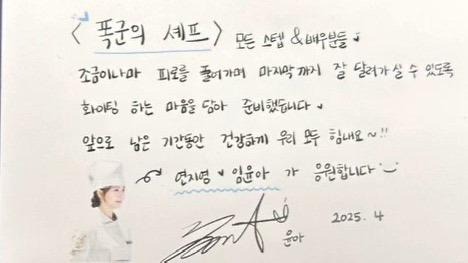 < 폭군의 셰프 > 모든 스텝 & 배우분들 ♥
조금이나마 피로를 풀어가며 마지막까지 잘 달려가실 수 있도록
화이팅 하는 마음을 담아 준비했습니다 ♥
앞으로 남은 기간동안 건강하게 우리 모두 힘내요~!!
연지영 ♥ 임윤아 가 응원합니다
윤아
2025. 4